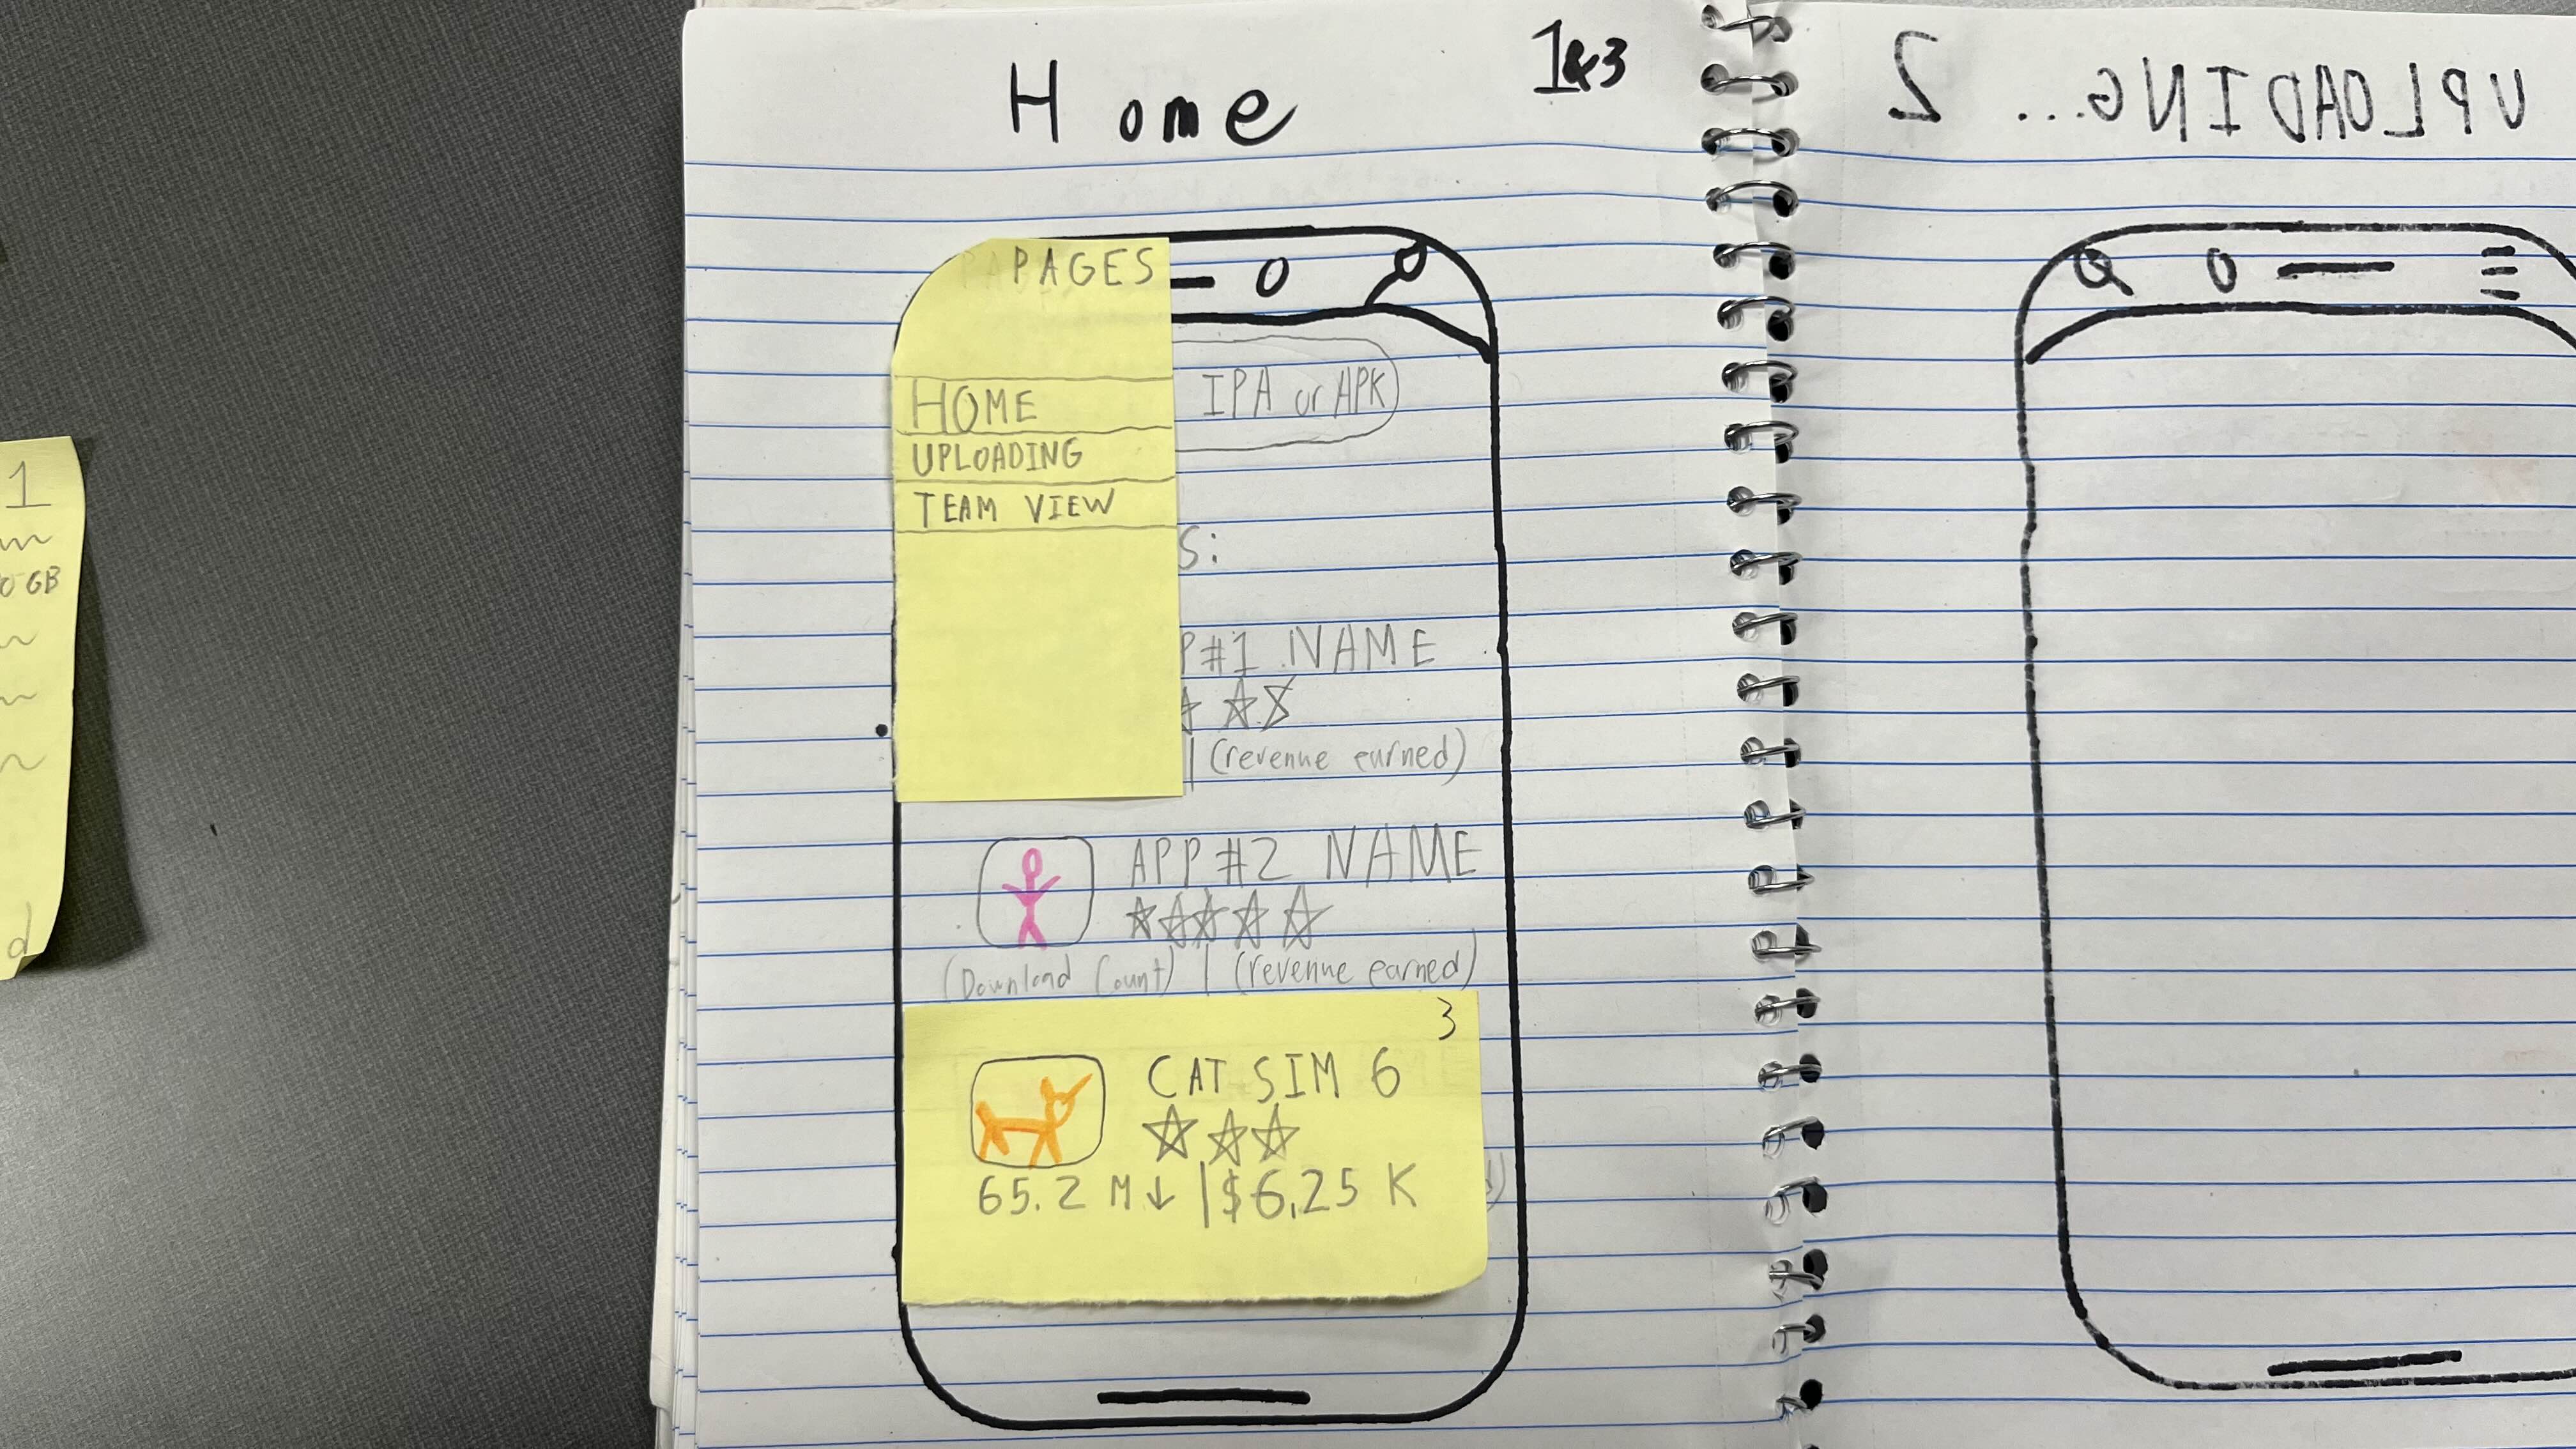 Home
1&3
PAGES
HOME
UPLOADING
TEAM VIEW
IPA or APK
S:
P#1 NAME
| (revenue earned)
APP #2 NAME
(Download Count) | (revenue earned)
3
CAT SIM 6
65.2 M↓ | $6.25 K
UPLOADING... 2
1
GB
d